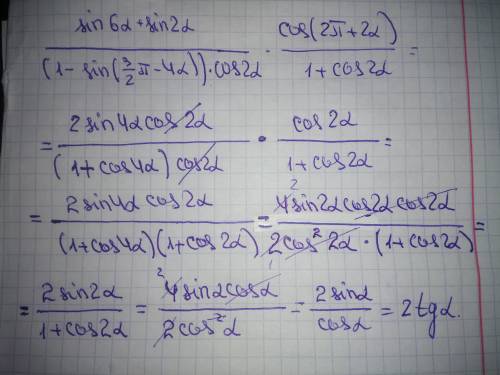 (sin6α+sin2α)/((1-sin(3/2π-4α))·cos2α) · cos(2π+2α)/(1+cos2α) =
= 2sin4αcos2α/((1+cos4α)cos2α) · cos2α/(1+cos2α) =
= 2sin4αcos2α/((1+cos4α)(1+cos2α)) = 4 2 sin2αcos2αcos2α/(2cos²2α·(1+cos2α)) =
= 2sin2α/(1+cos2α) = 2 4sinαcosα/(2cos²α) = 2sinα/cosα = 2tgα.